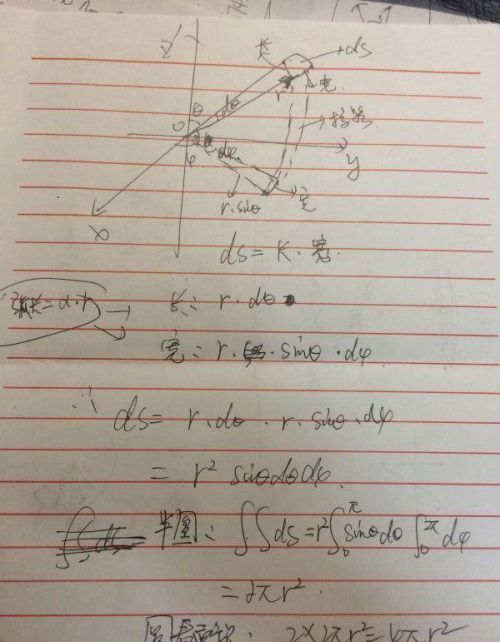 z
长
ds
θ
dθ
r
宽
O
φ
dφ
投影
y
x
r·sinθ
宽
ds = 长·宽.
弧长=α·r → 长: r·dθ
宽: r··sinθ·dφ
∴ ds= r·dθ·r·sinθ·dφ
= r² sinθdθdφ.
半圆: ∫∫ds=r²∫₀^π sinθdθ ∫₀^2π dφ
=2πr²
2×2πr²=4πr²